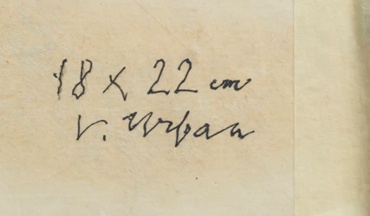 18 x 22 cm
V. Urban